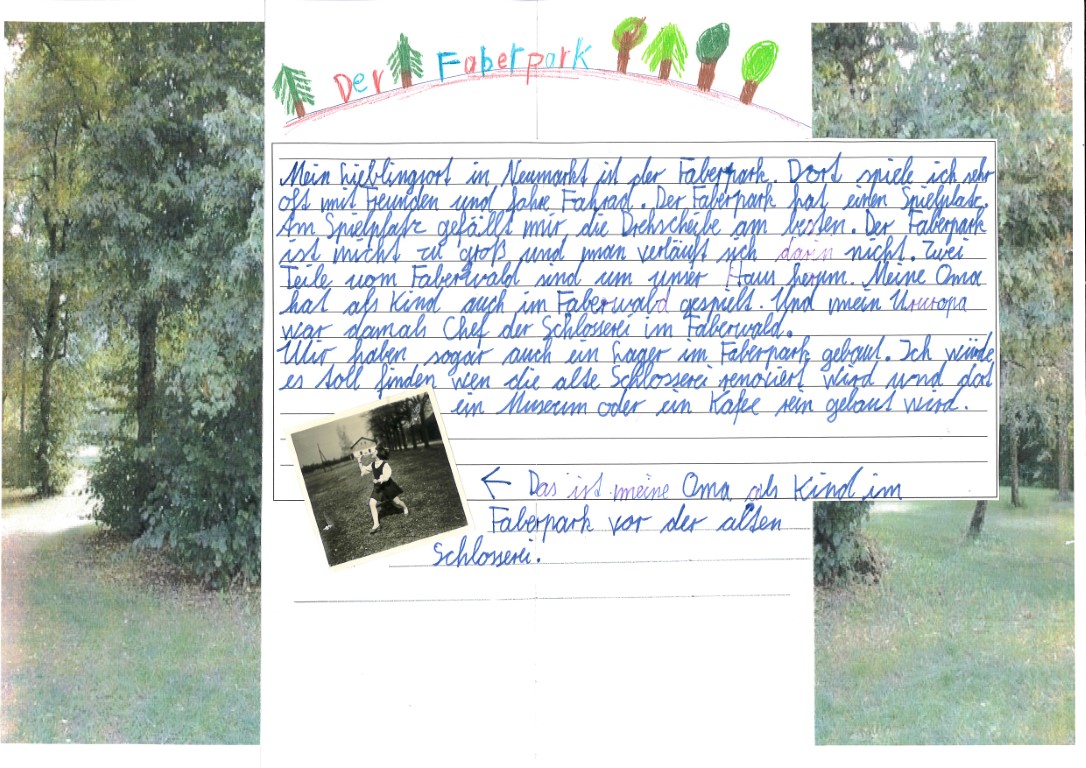 Der Faberpark
Mein Lieblingsort in Neumarkt ist der Faberpark. Dort spiele ich sehr
oft mit Freunden und fahre Fahrad. Der Faberpark hat einen Spielplatz.
Am Spielplatz gefällt mir die Drehscheibe am besten. Der Faberpark
ist nicht zu groß und man verläuft sich darin nicht. Zwei
Teile vom Faberwald sind um unser Haus herum. Meine Oma
hat als Kind auch im Faberwald gespielt. Und mein Ururopa
war damals Chef der Schlosserei im Faberwald.
Wir haben sogar auch ein Lager im Faberpark gebaut. Ich würde
es toll finden wen die alte Schlosserei renoviert wird und dort
ein Museum oder ein Kafee rein gebaut wird.
← Das ist meine Oma als Kind im
Faberpark vor der alten
Schlosserei.